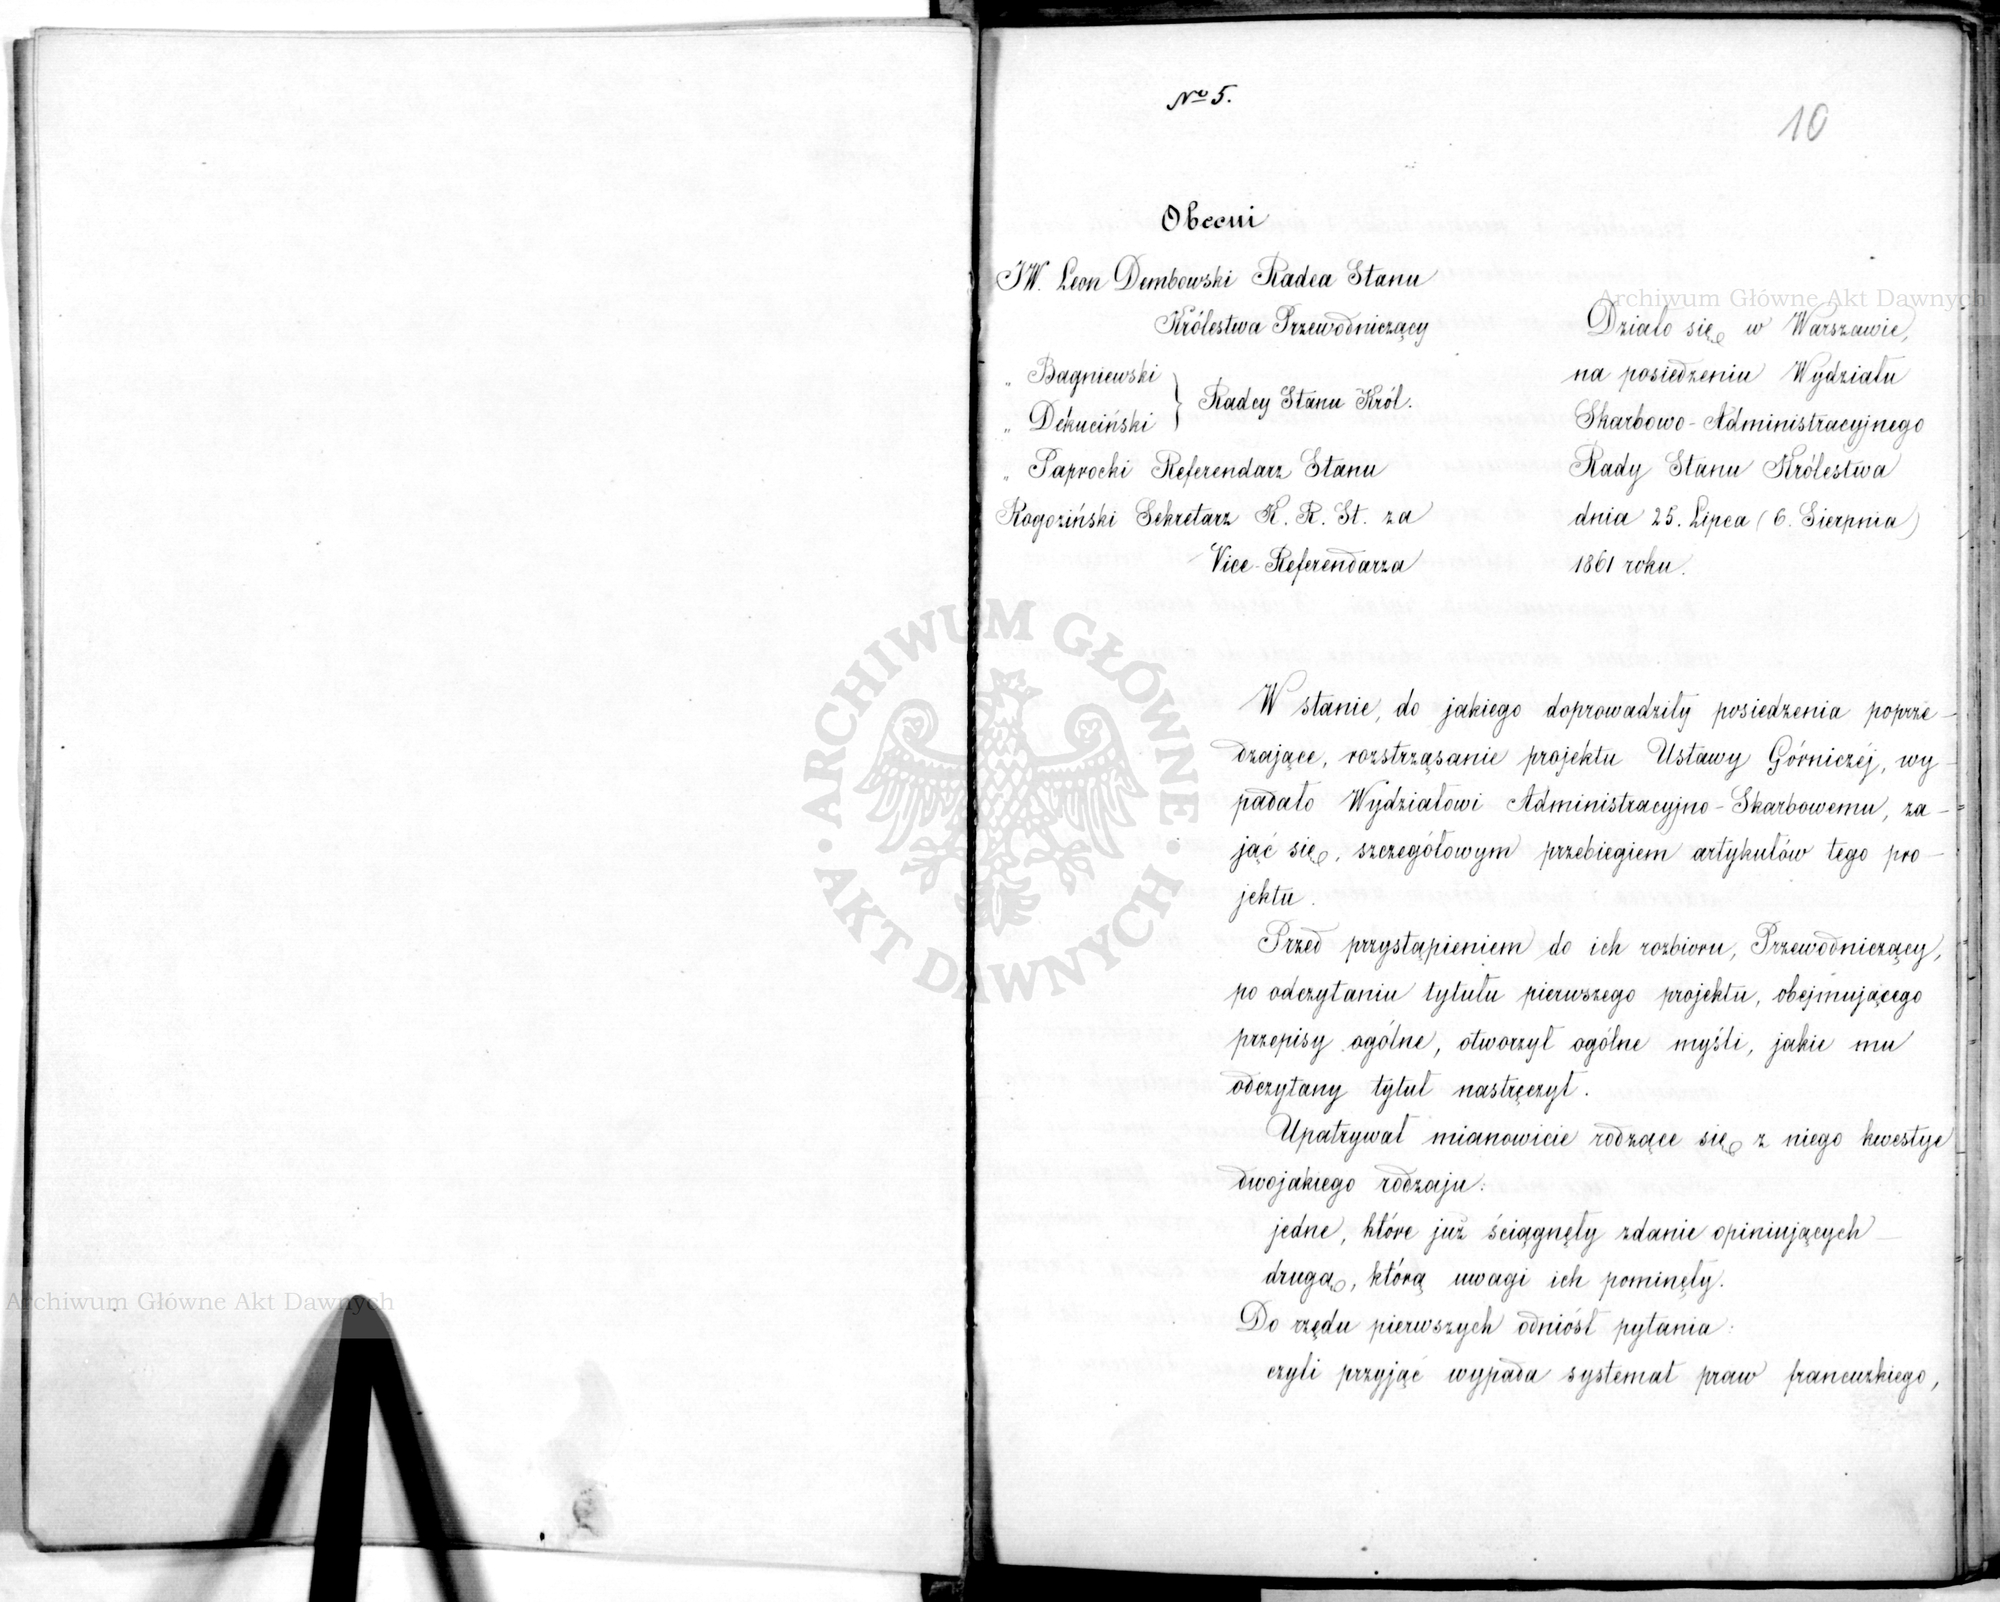 № 5.
10
Obecni
JW. Leon Dembowski Radca Stanu
Królestwa Przewodniczący
„ Bagniewski
„ Dekuciński
Radcy Stanu Król.
„ Paprocki Referendarz Stanu
Rogoziński Sekretarz K. R. St. za
Vice-Referendarza
Działo się w Warszawie,
na posiedzeniu Wydziału
Skarbowo-Administracyjnego
Rady Stanu Królestwa
dnia 25. Lipca (6. Sierpnia)
1861 roku.
W stanie, do jakiego doprowadziły posiedzenia poprze-
dzające, rozstrząsanie projektu Ustawy Górniczéj, wy-
padało Wydziałowi Administracyjno-Skarbowemu, za-
jąć się, szczegółowym przebiegiem artykułów tego pro-
jektu.
Przed przystąpieniem do ich rozbioru, Przewodniczący,
po odczytaniu tytułu pierwszego projektu, obejmującego
przepisy ogólne, otworzył ogólne myśli, jakie mu
odczytany tytuł nastręczył.
Upatrywał mianowicie rodzące się z niego kwestye
dwojakiego rodzaju:
jedne, które już ściągnęły zdanie opiniujących –
drugą, którą uwagi ich pominęły.
Do rzędu pierwszych odniósł pytania:
czyli przyjąć wypada systemat praw francuzkiego,
Archiwum Główne Akt Dawnych
Archiwum Główne Akt Dawnych
ARCHIWUM GŁÓWNE · AKT DAWNYCH ·